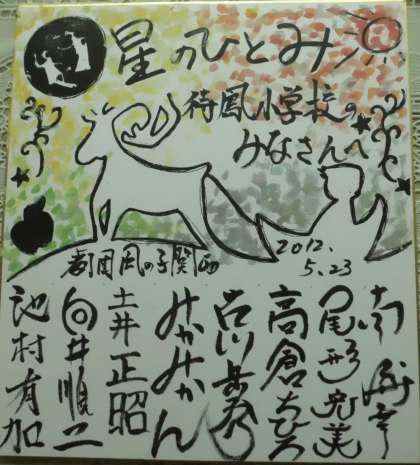 星のひとみ
待鳳小学校の
みなさんへ
2012.
5.23
劇団風の子関西
尾形充美
高倉ちひろ
古川安乃
みかみかん
土井正昭
向井順二
池村有加